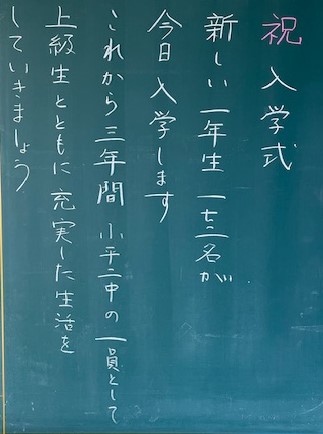 祝 入学式
新しい一年生 一七二名が
今日入学します
これから三年間 小平二中の一員として
上級生とともに充実した生活を
していきましょう